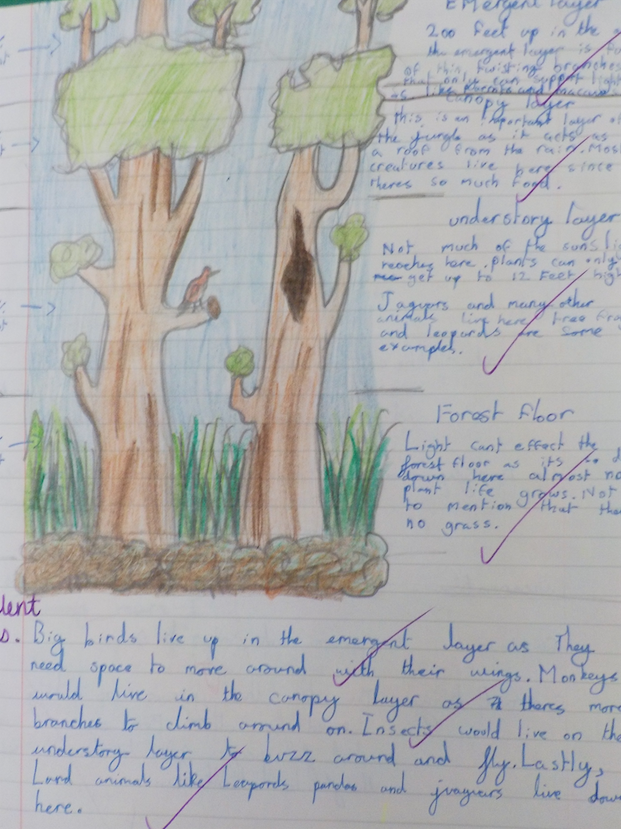 Emergent layer
200 feet up in the
the emergent layer is
of thin, twisting branches
that only can support light
as like and
canopy layer
this is an important layer of
the jungle as it acts as
a roof from the rain. Most
creatures live here since
theres so much food.
understory layer
Not much of the suns
reaches here. plants can only
get up to 12 feet high
Jaguars and many other
animals live here tree
and leopards are some
examples.
Forest floor
Light cant effect the
forest floor as its so
down here almost no
plant life grows. Not
to mention that
no grass.
Big birds live up in the emergent layer as They
need space to move around with their wings. Monkeys
would live in the canopy layer as theres more
branches to climb around on. Insects would live on the
understory layer to buzz around and fly. Lastly,
Land animals like Leapords pandas and jvaguers live down
here.